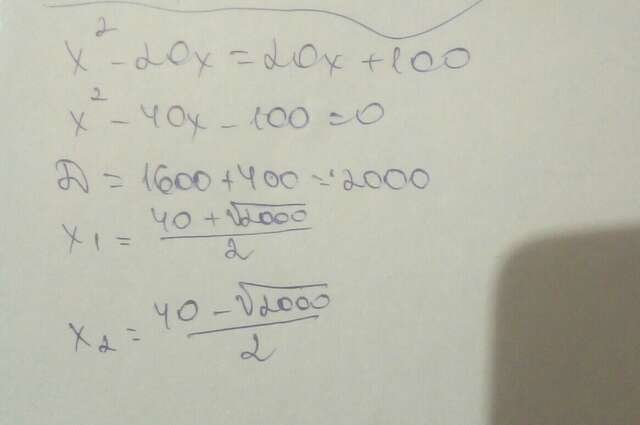 x² - 20x = 20x + 100
x² - 40x - 100 = 0
D = 1600 + 400 = 2000
x₁ = (40 + √2000) / 2
x₂ = (40 - √2000) / 2